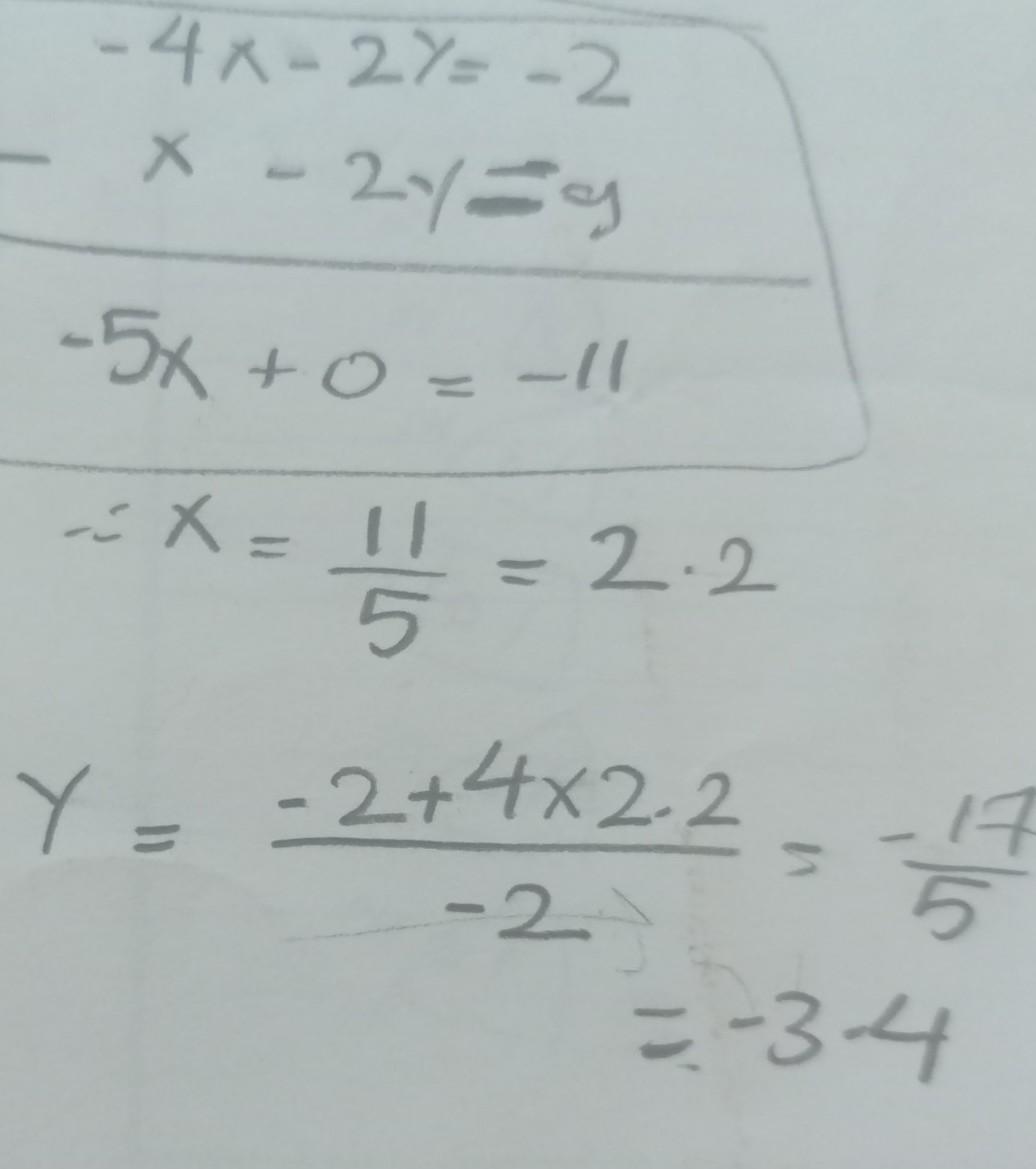 -4x - 2y = -2
- x - 2y = 9
-5x + 0 = -11
∴ x = 11/5 = 2.2
Y = (-2+4×2.2)/-2 = -17/5
= -3.4